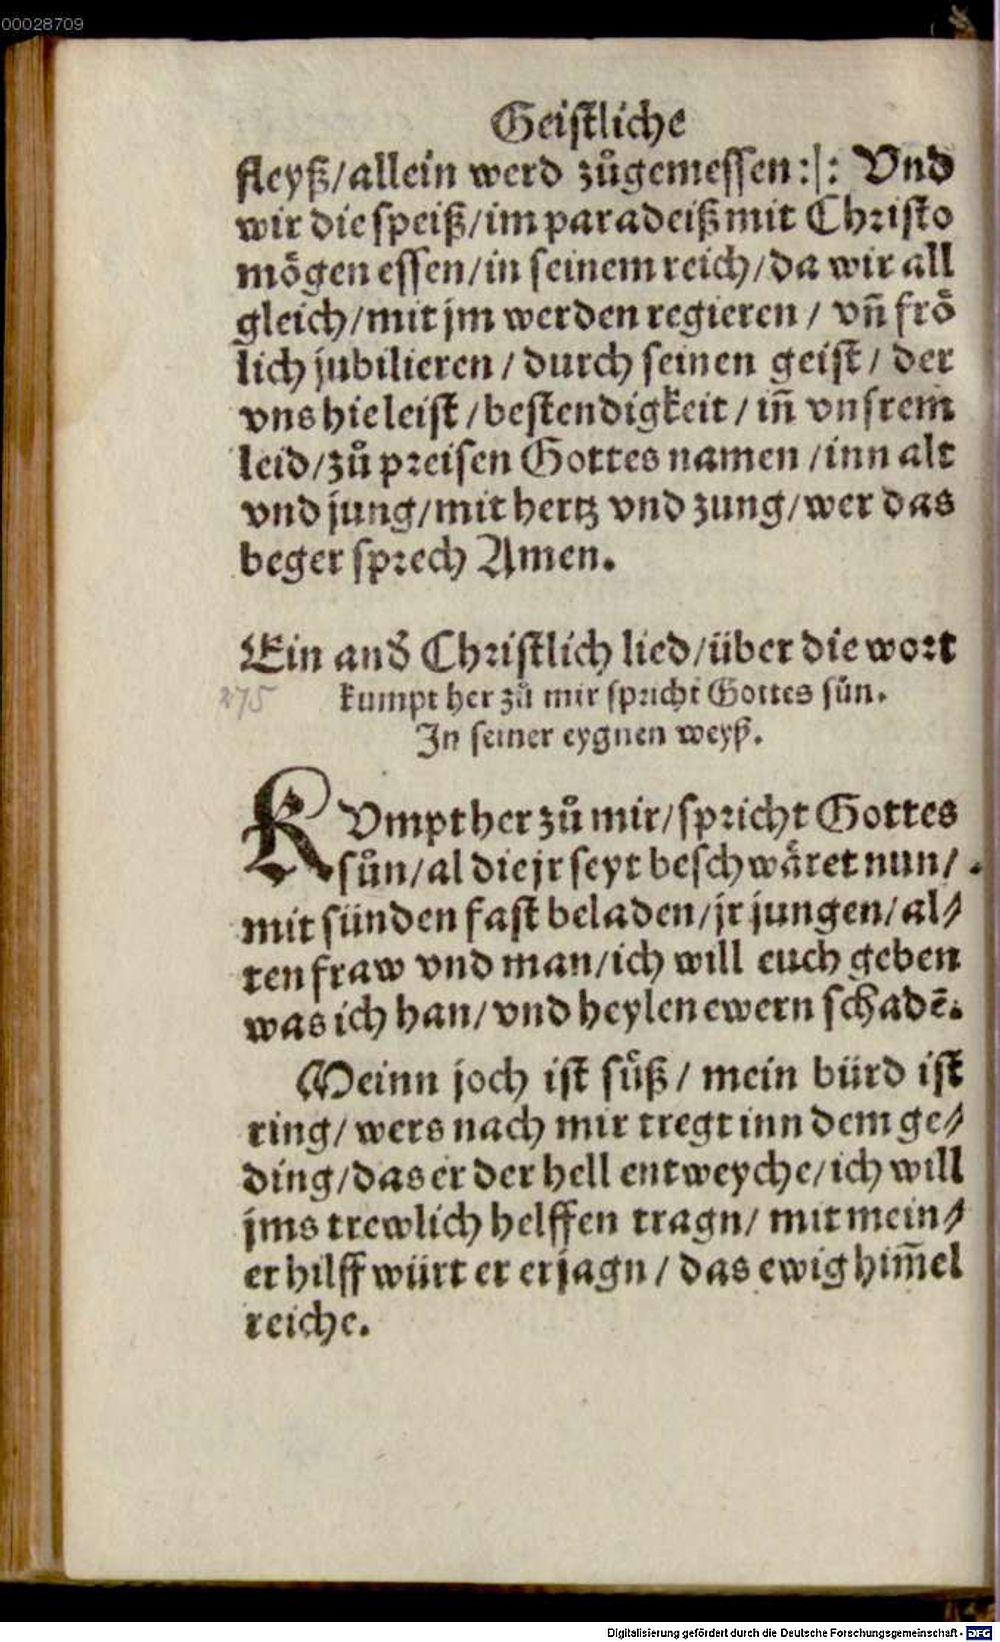 00028709
Geiſtliche
fleyß/allein werd zůgemeſſen:|: Vnd
wir die ſpeiß/im paradeiß mit Chꝛiſto
mögen eſſen/in ſeinem reich/da wir all
gleich/mit jm werden regieren / vñ frö
lich jubilieren / durch ſeinen geiſt / der
vns hie leiſt / beſtendigkeit / iñ vnſrem
leid/zů pꝛeiſen Gottes namen /inn alt
vnd jung/mit hertz vnd zung/wer das
beger ſpꝛech Amen.
Ein and̕ Chꝛiſtlich lied/über die woꝛt
275
kumpt her zů mir ſpꝛicht Gottes ſůn.
In ſeiner eygnen weyß.
KVmpt her zů mir/ſpꝛicht Gottes
ſůn/al die jr ſeyt beſchwäret nun/
mit ſünden faſt beladen/jr jungen/al⸗
ten fraw vnd man/ich will euch geben
was ich han/vnd heylen ewern ſchadẽ.
Meinn joch iſt ſüß / mein bürd iſt
ring/ wers nach mir tregt inn dem ge⸗
ding/das er der hell entweyche/ich will
jms trewlich helffen tragn/ mit mein⸗
er hilff würt er erjagn / das ewig him̃el
reiche.
Digitalisierung gefördert durch die Deutsche Forschungsgemeinschaft - DFG